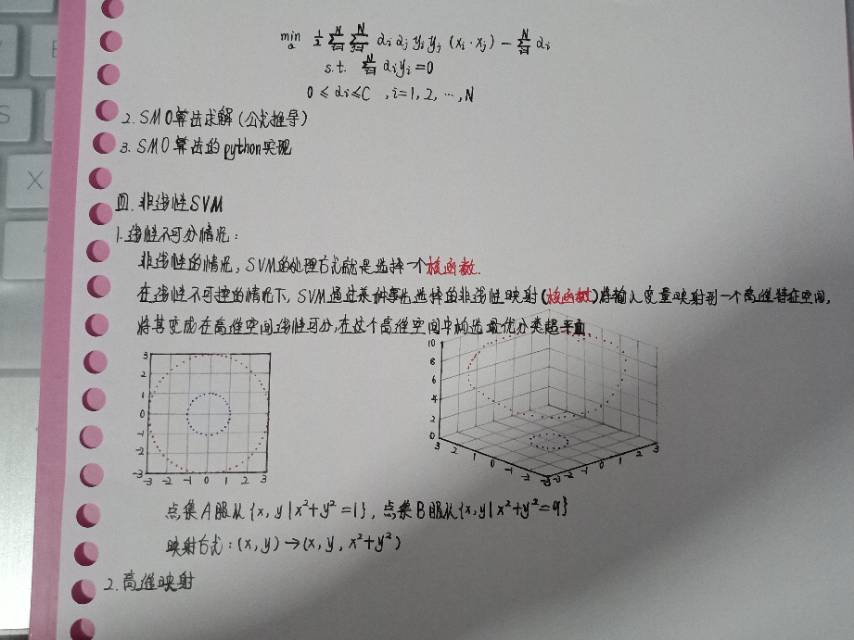 min α 1/2 Σ_{i=1}^{N} Σ_{j=1}^{N} αᵢ αⱼ yᵢ yⱼ (xᵢ · xⱼ) − Σ_{i=1}^{N} αᵢ
s.t. Σ_{i=1}^{N} αᵢ yᵢ = 0
0 ≤ αᵢ ≤ C , i = 1, 2, ⋯, N
2. SMO算法求解(公式推导)
3. SMO算法的python实现
四. 非线性SVM
1. 线性不可分情况:
非线性的情况, SVM的处理方式就是选择一个核函数.
在线性不可控的情况下, SVM通过某种事先选择的非线性映射(核函数)将输入变量映射到一个高维特征空间,
将其变成在高维空间线性可分, 在这个高维空间中构造最优分类超平面.
3
2
1
0
-1
-2
-3
-3 -2 -1 0 1 2 3
10
8
6
4
2
0
3 2 1 0 -1 -2 -3
-3 -2 -1 0 1 2 3
点集A服从{x, y | x²+y²=1}, 点集B服从{x, y | x²+y²=9}
映射方式: (x, y) → (x, y, x²+y²)
2. 高维映射
S
X